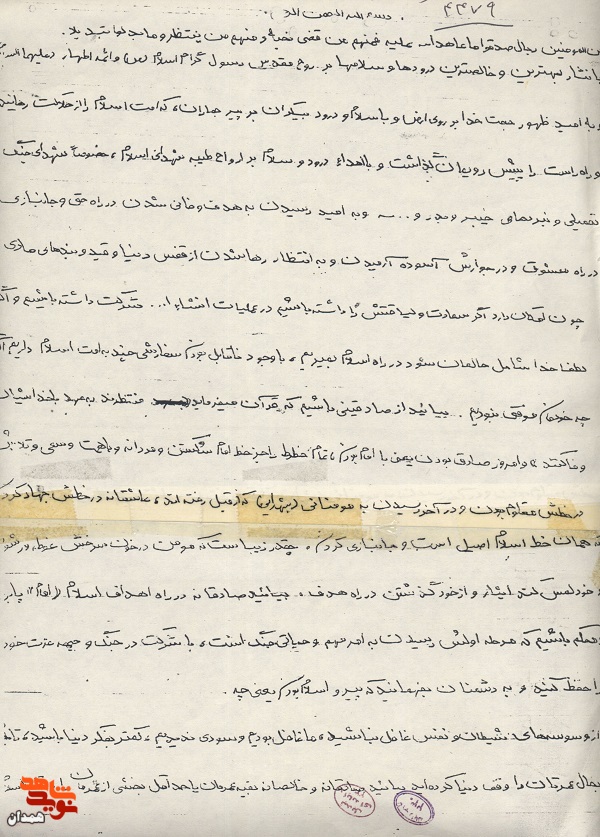 ۴۴۷۹
بسم الله الرحمن الرحیم
من المومنین رجال صدقوا ما عاهدالله علیه فمنهم من قضی نحبه و منهم من ینتظر و ما بدلوا تبدیلا.
با نثار بهترین و خالصترین درودها و سلامها بر روح مقدس رسول گرام اسلام (ص) وائمه اطهار (علیها السلام)
و به امید ظهور حجت خدا بر روی ارض و با سلام و درود بیکران بر پیر جماران، که امت اسلام را از هلاکت رهانید
و راه راست را پیش رویمان گذاشت و با اهداء درود و سلام بر ارواح طیبه شهدای اسلام، خصوصاً شهدای جنگ
تحمیلی و نبردهای خیبر و بدر و... و به امید رسیدن به هدف و فانی شدن در راه حق و جانبازی
در راه معشوق و در جوارش آسوده آرمیدن و به انتظار رها شدن از قفس دنیا و قید و بندهای مادی
چون امکان دارد اگر سعادت و لیاقتش را داشته باشیم در عملیات انشاءا... شرکت داشته باشیم و اگر
لطف خدا شامل حالمان شود در راه اسلام بمیریم، با وجود ناقابل بودنم سفارشی چند به امت اسلام دارم اگر
چه خودم موفق نبودیم... بیائید از صادقینی باشیم که قرآن میفرماید منتظرند به عهد بلند استیان
وفا کنند و امروز صادق بودن یعنی با امام بودن، تمام خطها را جز خط امام شکستن و مردانه و با همت و سعی و تلاش
در خطش مقاوم بودن و در آخر رسیدن به مومنانی (شهدایی) که از قبل رفته اند، عاشقانه در خطش جهاد کردن
که همان خط اسلام اصیل است و جانبازی کردن. چقدر زیباست که مومن در خون سرخش غوطه ور شود
و خود لمس کند ایثار و از خود گذشتن در راه هدف. بیائید صادقانه در راه اهداف اسلام و امام پابر
و محکم باشیم که مرحله اولش رسیدن به امر مهم و حیاتی جنگ است، با شرکت در جنگ و جبهه عزت خود
را حفظ کنید و به دشمنان بفهمانید که پیرو اسلام بودن یعنی چه.
از وسوسه های شیطان و نفس غافل نباشید، ما غافل بودیم و سودی ندیدیم، کمتر بفکر دنیا باشید، تا بحال
بحال عمرتان را وقف دنیا کرده اید بیائید و خالصانه بقیه عمرتان یا حداقل بخشی از عمرتان را
نوید شاهد
همدان